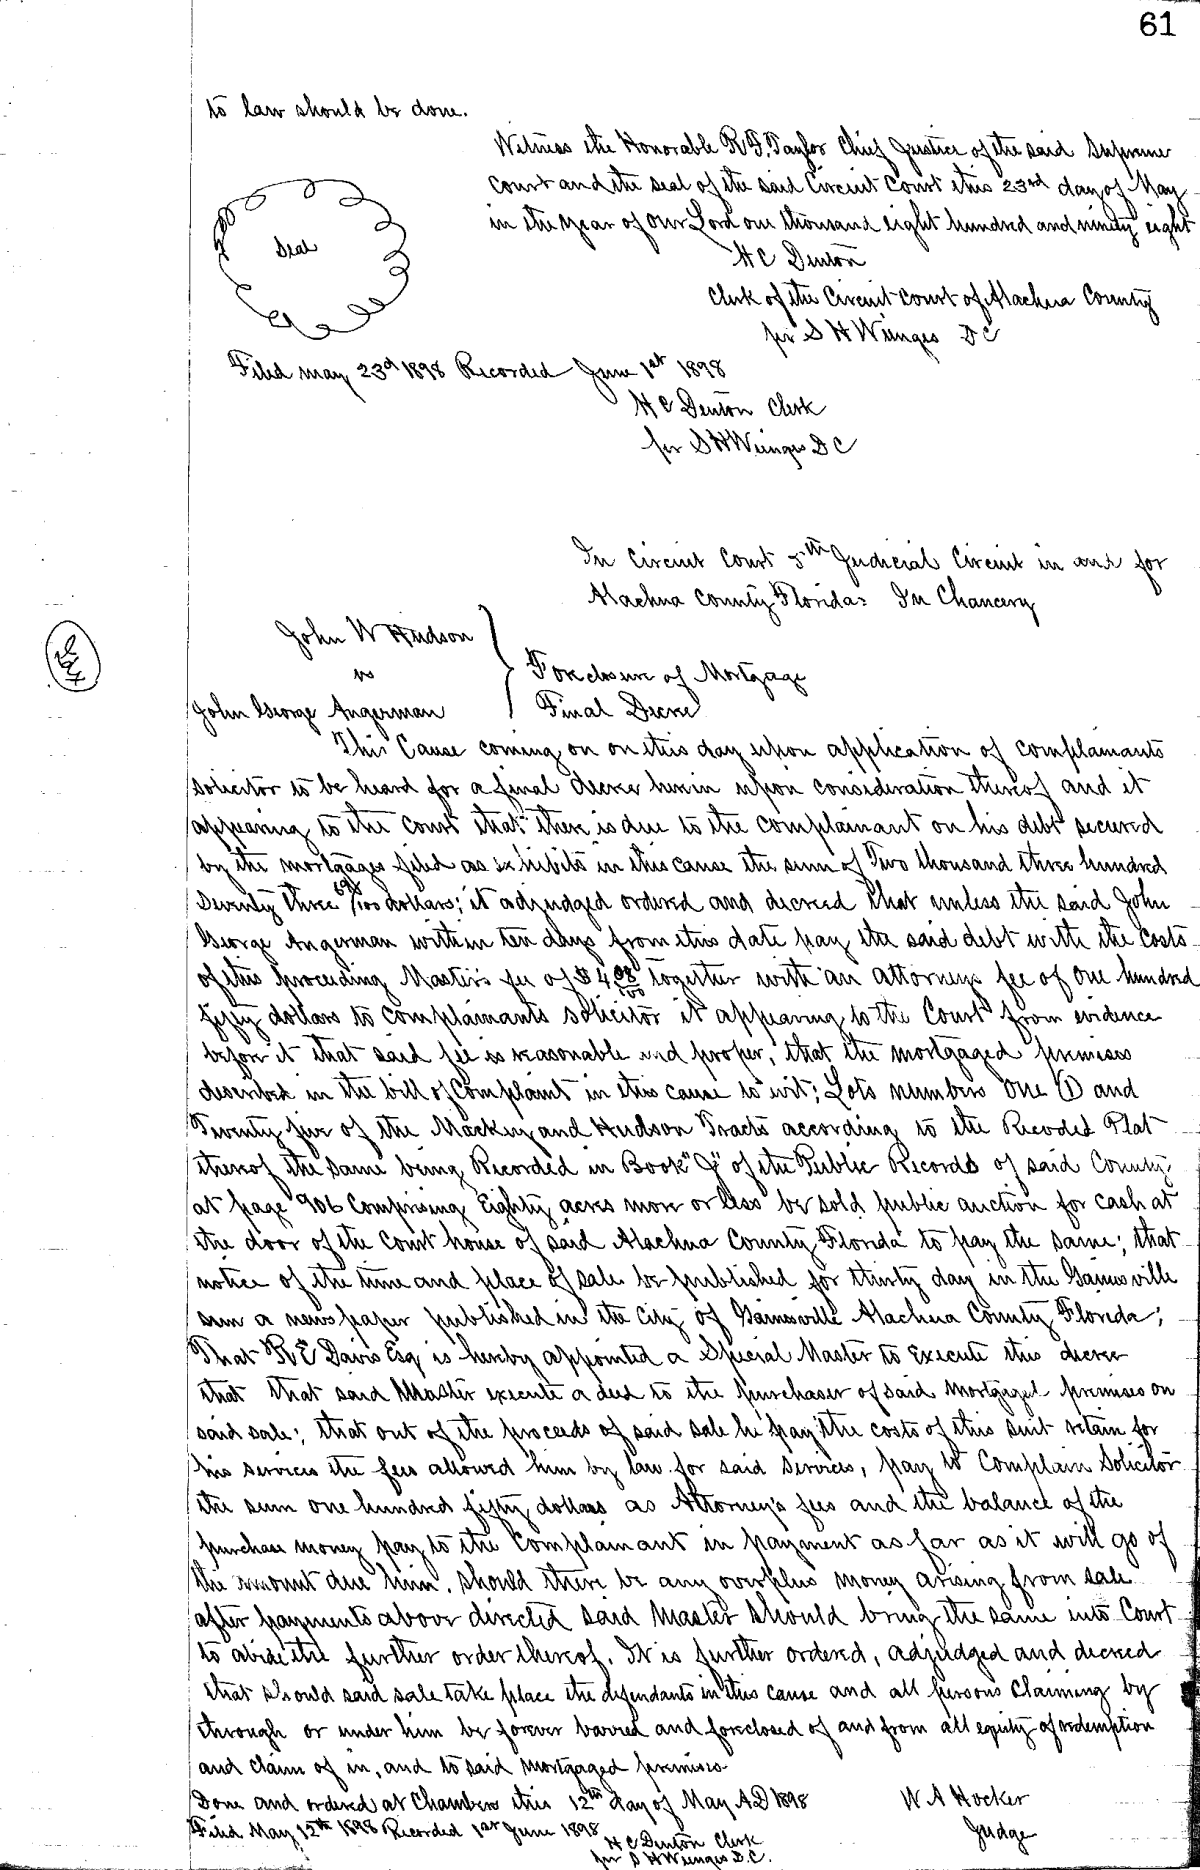 61
to law should be done.
Witness the Honorable R.F. Taylor Chief Justice of the said Supreme
Court and the seal of the said Circuit Court this 23rd day of May
in the year of our Lord one thousand eight hundred and ninety eight
Seal
H C Denton
Clerk of the Circuit Court of Alachua County
per S H Wienges DC
Filed may 23d 1898 Recorded June 1st 1898
H C Denton Clerk
per S H Wienges DC
In Circuit Court 5th Judicial Circuit in and for
Alachua County Florida: In Chancery
John W Hudson
vs
Foreclosure of Mortgage
John George Angerman
Final Decree
This Cause coming on on this day upon application of complainants
solicitor to be heard for a final decree herein upon consideration thereof and it
appearing to the Court that there is due to the complainant on his debt secured
by the mortgages filed as exhibits in this cause the sum of Two thousand three hundred
Seventy three 68/100 dollars; it adjudged ordered and decreed that unless the said John
George Angerman within ten days from this date pay the said debt with the costs
of this proceeding Master's fee of $4 08/100 together with an attorneys fee of One hundred
fifty dollars to complainants solicitor it appearing to the Court from evidence
before it that said fee is reasonable and proper, that the mortgaged premises
described in the bill of Complaint in this cause to wit; Lots numbers One (1) and
Twenty five of the Mackey and Hudson Tracts according to the Recoded Plat
thereof the same being Recorded in Book "J" of the Public Records of said County
at page 906 Comprising Eighty acres more or less be sold public auction for cash at
the door of the Court house of said Alachua County Florida to pay the same; that
notice of the time and place of sale be published for thirty day in the Gainesville
sun a newspaper published in the City of Gainesville Alachua County Florida;
That R E Davis Esq is hereby appointed a Special Master to Execute this decree
that that said Master execute a deed to the purchaser of said mortgaged premises on
said sale; that out of the proceeds of said sale he pay the costs of this suit retain for
his services the fees allowed him by law for said services, pay to Complain Solicitor
the sum one hundred fifty dollars as Attorney's fees and the balance of the
purchase money pay to the Complainant in payment as far as it will go of
the amount due him. Should there be any overplus money arising from sale
after payments above directed said Master should bring the same into Court
to abide the further order thereof. It is further ordered, adjudged and decreed
that should said sale take place the defendants in this cause and all persons claiming by
through or under him be forever barred and foreclosed of and from all equity of redemption
and claim of in, and to said mortgaged premises
Done and ordered at Chambers this 12th day of May A.D 1898
W A Hocker
Judge
Filed May 12th 1898 Recorded 1st June 1898
H C Denton Clerk
per S H Wienges D.C.